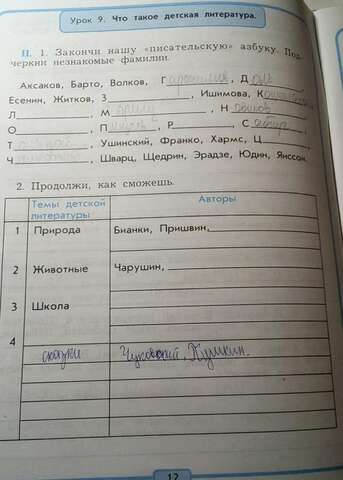 Урок 9. Что такое детская литература.
II. 1. Закончи нашу «писательскую» азбуку. Под-
черкни незнакомые фамилии.
Аксаков, Барто, Волков, Г , Д
Есенин, Житков, З________, Ишимова, К
Л________, М , Н
О________, П , Р________, С
Т , Ушинский, Франко, Хармс, Ц________,
Ч , Шварц, Щедрин, Эрадзе, Юдин, Яиссон.
2. Продолжи, как сможешь.
Темы детской литературы Авторы
1 Природа Бианки, Пришвин,
2 Животные Чарушин,
3 Школа
4 сказки Чуковский, Пушкин.
12